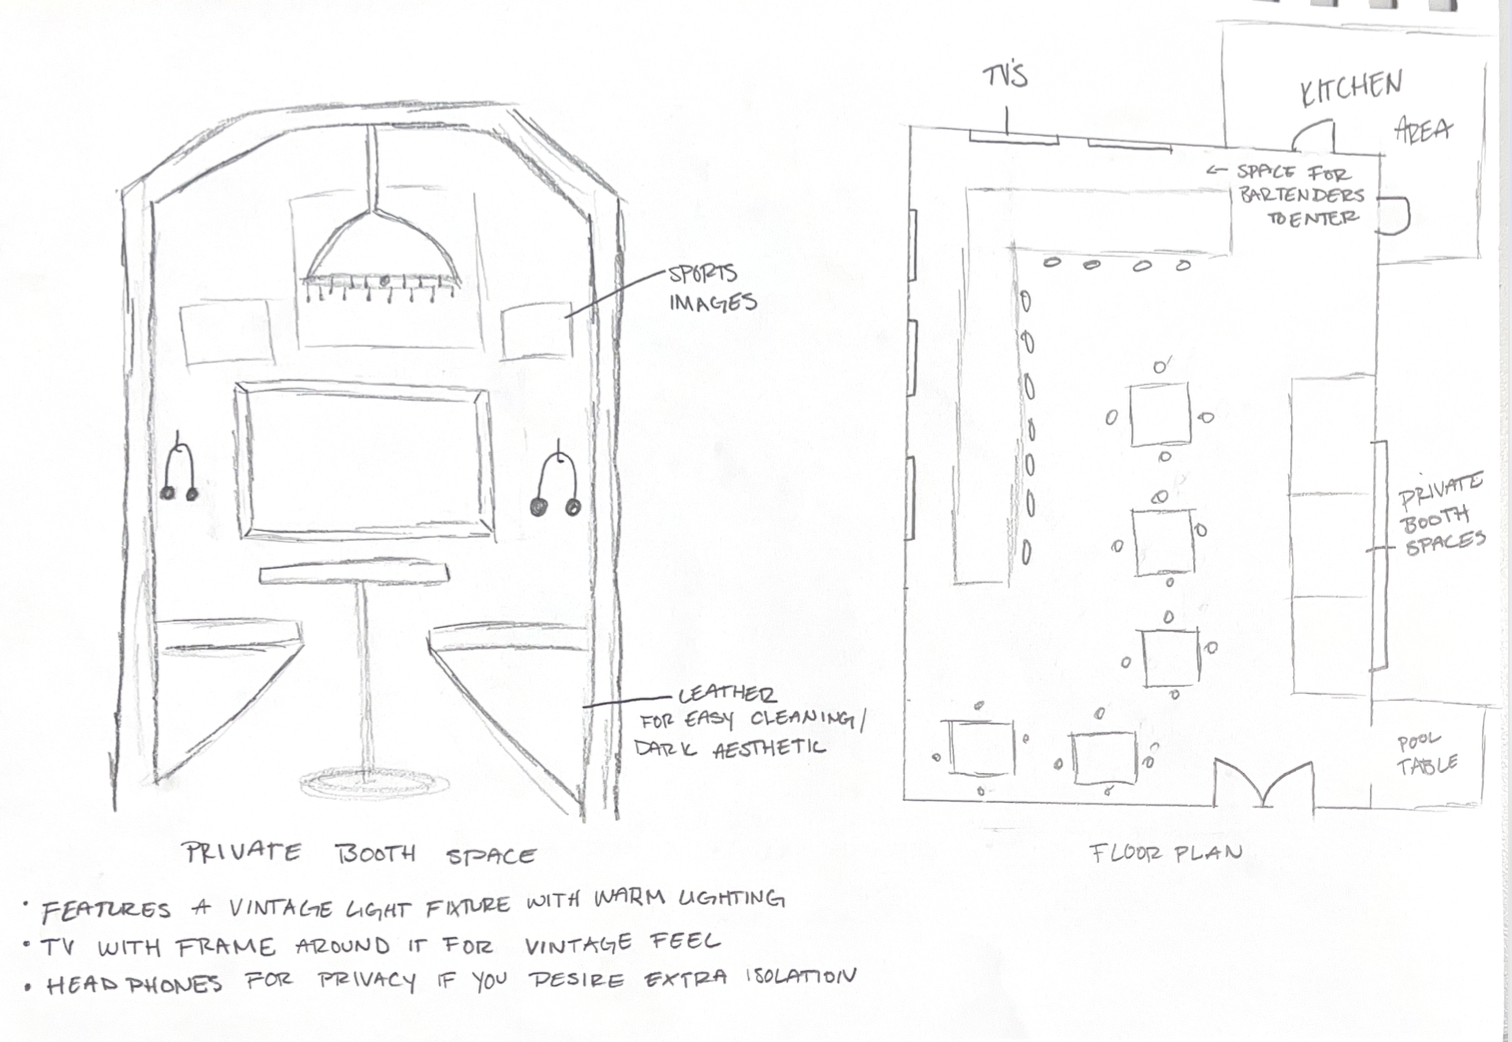 SPORTS
IMAGES
LEATHER
FOR EASY CLEANING/
DARK AESTHETIC
PRIVATE BOOTH SPACE
• FEATURES A VINTAGE LIGHT FIXTURE WITH WARM LIGHTING
• TV WITH FRAME AROUND IT FOR VINTAGE FEEL
• HEADPHONES FOR PRIVACY IF YOU DESIRE EXTRA ISOLATION
TV'S
KITCHEN
AREA
← SPACE FOR
BARTENDERS
TO ENTER
PRIVATE
BOOTH
SPACES
POOL
TABLE
FLOOR PLAN